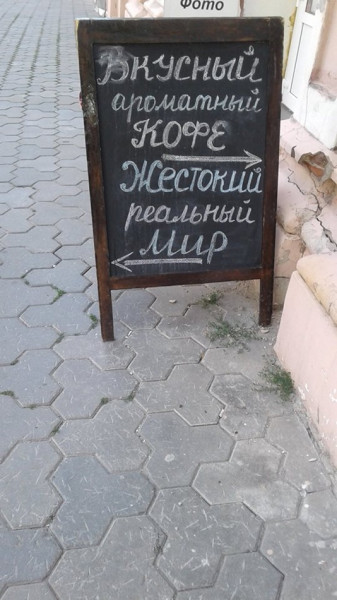 Фото
Вкусный
ароматный
КОФЕ
Жестокий
реальный
Мир